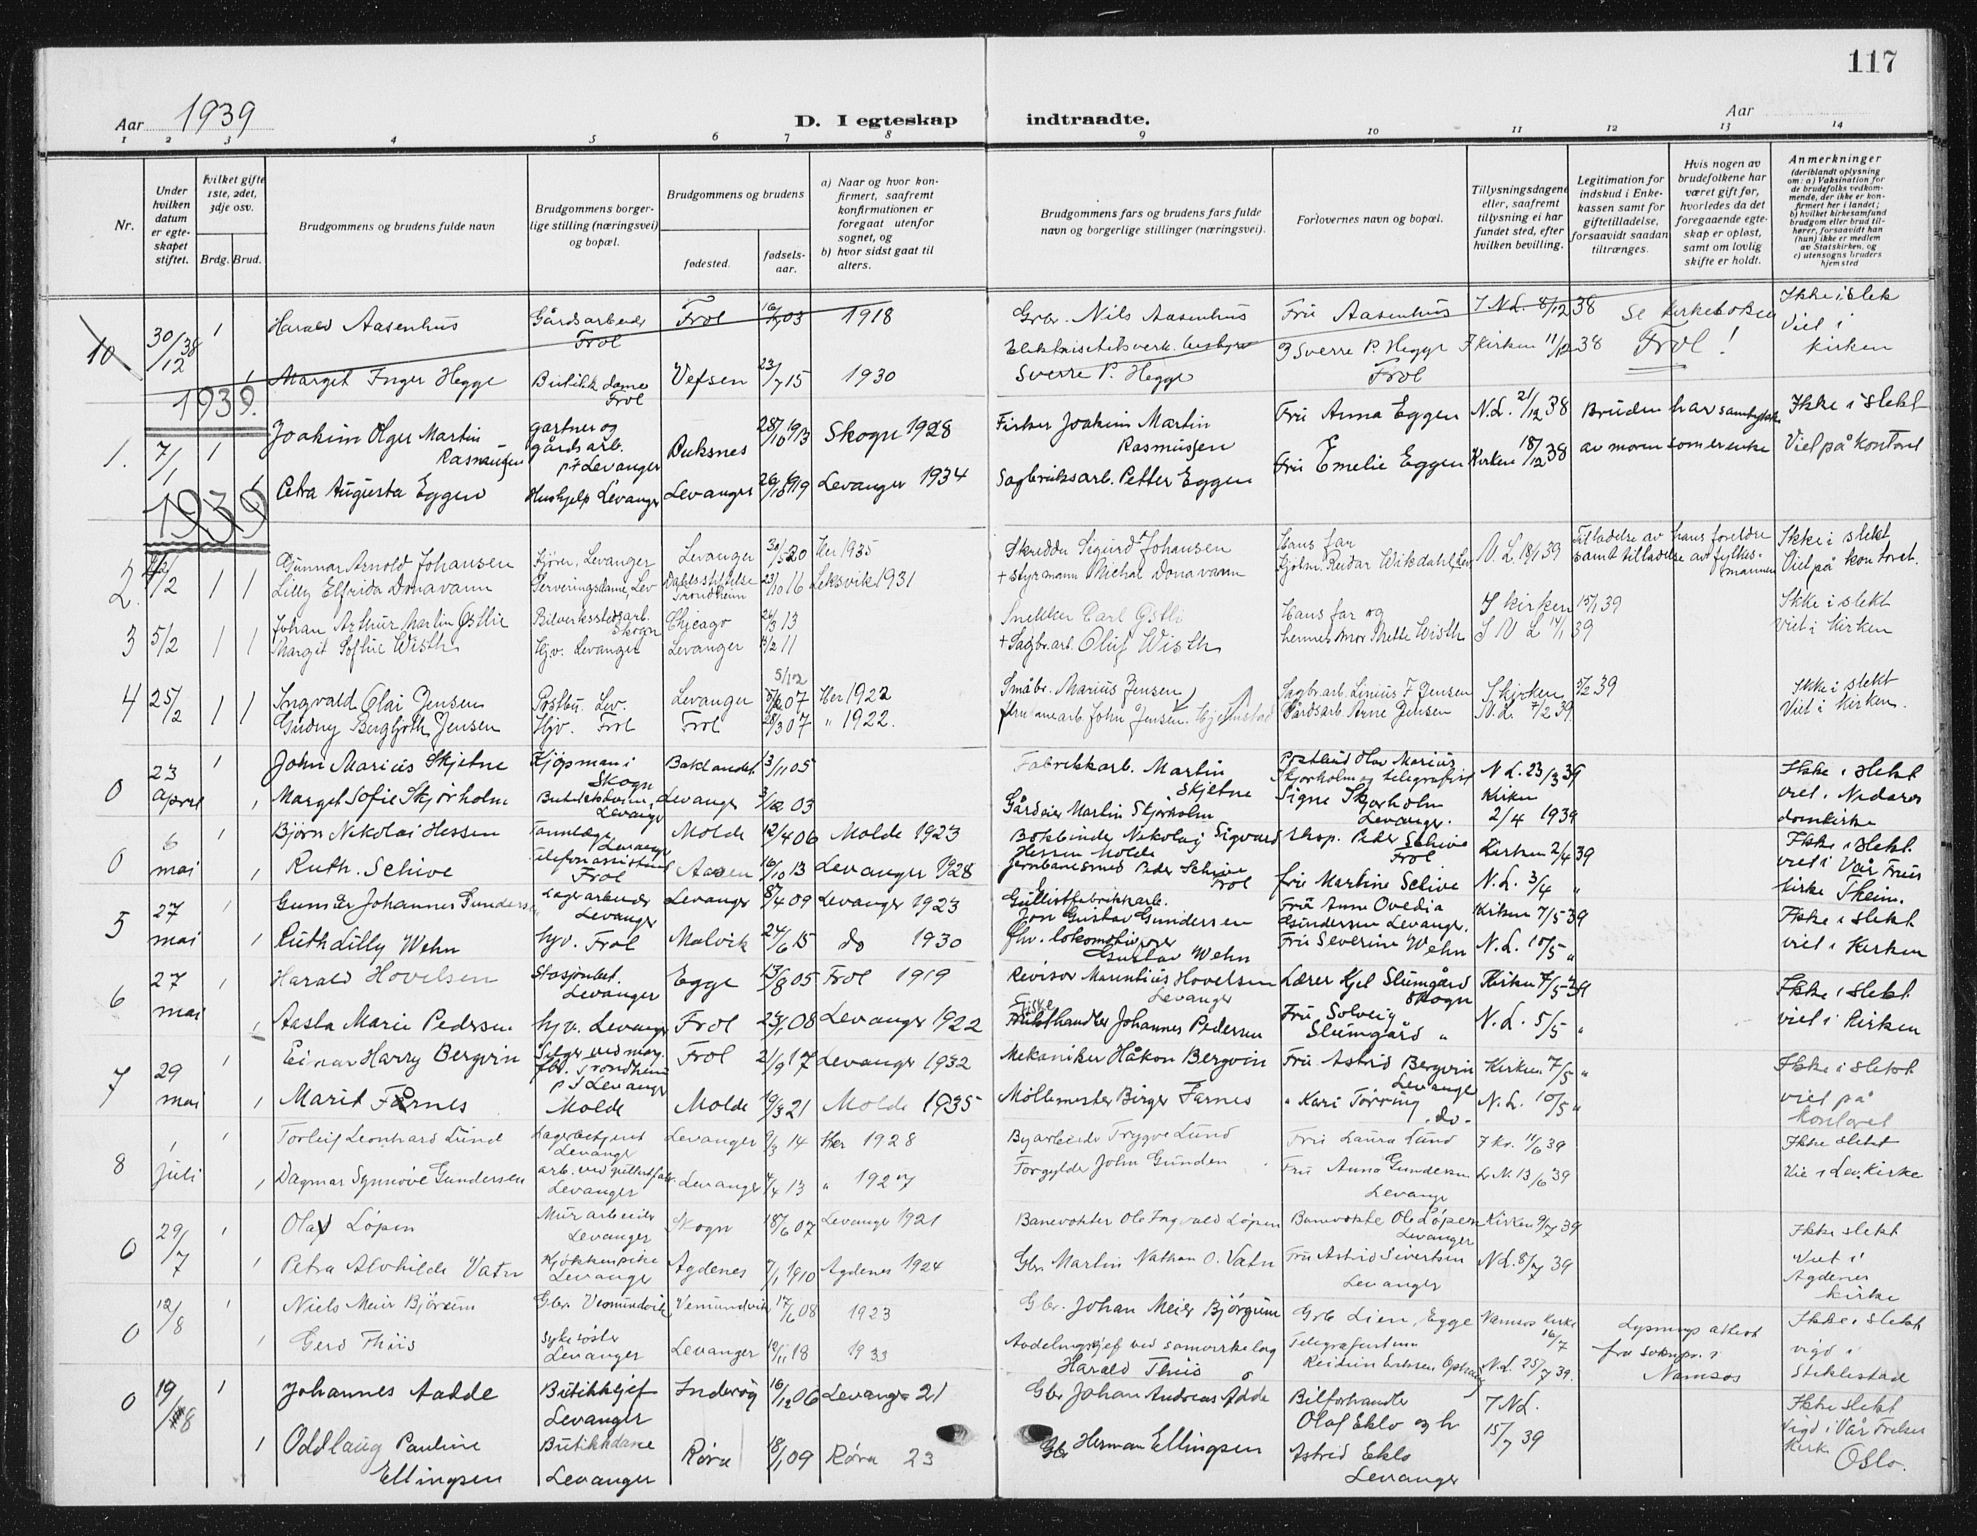 117
Aar 1939
D. I egteskap indtraadte.
Aar
1 2 3 4 5 6 7 8 9 10 11 12 13 14
Nr.
Under hvilken datum er egteskapet stiftet.
Hvilket gifte 1ste, 2det, 3dje osv.
Brdg. Brud.
Brudgommens og brudens fulde navn
Brudgommens borgerlige stilling (næringsvei) og bopæl.
Brudgommens og brudens
fødested.
fødselsaar.
a) Naar og hvor konfirmert, saafremt konfirmationen er foregaat utenfor sognet, og
b) hvor sidst gaat til alters.
Brudgommens fars og brudens fars fulde navn og borgerlige stillinger (næringsvei).
Forlovernes navn og bopæl.
Tillysningsdagene eller, saafremt tillysning ei har fundet sted, efter hvilken bevilling.
Legitimation for indskud i Enkekassen samt for giftetilladelse, forsaavidt saadan tiltrænges.
Hvis nogen av brudefolkene har været gift før, hvorledes da det foregaaende egteskap er opløst, samt om lovlig skifte er holdt.
Anmerkninger (deriblandt oplysning om: a) Vaksination for de brudefolks vedkommende, der ikke er konfirmert her i landet; b) hvilket kirkesamfund brudgom eller brud tilhører, forsaavidt han (hun) ikke er medlem av Statskirken, og c) utensogns bruders hjemsted
10 30/12 38 1 Harald Aasenhus Gårdsarbeider Frol Frol 03 1918 Grbr. Nils Aasenhus Fru Aasenhus I N.L. 8/12 38 Se kirkeboken Frol! Ikke i slekt Viet i kirken
1 Marget Inger Hegge Butikkdame Frol Vefsen 23/7 15 1930 Sverre P. Hegge Sverre P. Hegge Frol I kirken 11/12 38
1939.
1. 7/1 1 Joakim Olger Martin Rasmussen gartner og gårdsarb. på Levanger Buksnes 28/10 1913 Skogn 1928 Fisker Joakim Martin Rasmussen Fru Anna Eggen N.L. 21/12 38 Bruden har samtykke Ikke i slekt
1 Petra Augusta Eggen Hushjelp Levanger Levanger 26/10 1919 Levanger 1934 Sagbruksarb. Petter Eggen Fru Emelie Eggen Kirken 18/12 38 av moren som er enke Viet på kontoret
1939
2 4/2 1 Gunnar Arnold Johansen Levanger Levanger 30/5 20 Her 1935 Skredder Sigurd Johansen Hans far N.L. 18/1 39 Tilladelse av hans foreldre Ikke i slekt
1 Lilly Elfrida Donavann Serveringsdame, Lev Dahls stiftelse Trondheim 23/10 16 Leksvik 1931 + Styrmann Michal Donavann Reidar Wikdahl, Lev samt tilladelse av fylkesmannen Viet på kontoret.
3 5/2 1 Johan Arthur Martin Østlie Bilverkstedarb. Skogn Chicago 26/3 13 Snekker Carl Østli Hans far og I kirken 15/1 39 Ikke i slekt
1 Margit Sofhie Wisth Hjv. Levanger Levanger 11 + Sagbr.arb. Oluf Wisth hennes mor Mette Wisth I N L 14/1 39 Viet i Kirken
5/12
4 25/2 1 Ingvald Olai Jensen Postbu. Lev. Levanger 07 Her 1922 Småbr. Marius Jensen Sagbr.arb. Linius F Jensen I kirken 5/2 39 Ikke i slekt
1 Gudny Bergljoth Jensen Hjv. Frol Frol 28/3 07 " 1922. John Jensen. Gårdsarb Arne Jensen N.L. 7/2 39. Viet i Kirken.
0 23 april 1 John Marius Skjetne Kjøpman i Skogn Baklandet 3/11 05 Fabrikkarb. Martin Skjetne Postbud Olav Marius Skjorholm og telegrafist N L. 23/3 39 Ikke i slekt
1 Marget Sofie Skjørholm Levanger Levanger 3/12 03 Gårdeier Martin Skjørholm Signe Skjorholm Levanger. Kirken 2/4 1939 viet i Nidaros domkirke
0 6 mai 1 Bjørn Nikolai Hessen Tannlege Levanger Molde 12/4 06 Molde 1923 Bokbinder Nikolaj Sigvard Hessen Molde Peder Schive Frol Kirken 2/4 39 Ikke i slekt.
1 Ruth. Schive Telefonassistent Frol Aasen 16/10 13 Levanger 1928 Jernbanesmed Peder Schive Frol fru Martine Schive N.L. 3/4 " viet i Vår Frues kirke Theim.
5 27 mai 1 Gunnar Johannes Gunderse Lagerarbeider Levanger Levanger 8/4 09 Levanger 1923 Gullistfabrikkarb. Jon Gustav Gundersen Fru Anne Ovedia Gundersen Levanger. Kirken 7/5 39 Ikke i slekt
1 Ruth Lilly Wehn hjv. Frol Malvik 24/6 15 do 1930 Gustav Wehn Fru Severine Wehn N.L. 10/5 " viet i Kirken
6 27 mai 1 Harald Hovelsen Stasjonbet. Levanger Egge 13/8 05 Frol 1919 Revisor Marentius Hovelsen Levanger Lærer Hjel Slumgård Skogn Kirken 7/5 39 Ikke i slekt
1 Aasta Marie Pedersen hjv. Levanger Frol 08 Levanger 1922 Fiske Frukthandler Johannes Pedersen Fru Solveig Slumgård " N.L. 5/5 " viet i kirken
7 29 mai 1 Einar Harry Bergvin Trondheim p t Levanger Frol 21/9 17 Levanger 1932 Mekaniker Håkon Bergvin Fru Astrid Bergvin Levanger Kirken 7/5 " Ikke i slekt
1 Marit Farnes Molde Molde 19/3 21 Molde 1935 Møllemester Birger Farnes " Kari Tørring do. N.L. 10/5 " viet på kontoret
8 1 juli 1 Torleif Leonhard Lund Lagerbetjent Levanger Levanger 9/3 14 Her 1928 Byarbeider Trygve Lund Fru Laura Lund I Kr. 11/6 39 Ikke slekt
1 Dagmar Synnøve Gundersen arb. ved gullistfabr. Levanger Levanger 4/4 13 " 1927 Forgylder John Gunden Fru Anna Gundersen Levanger L N. 13/6 39 Vie i Lev. kirke
0 29/7 1 Olav Løpen Murarbeider Levanger Skogn 18/6 07 Levanger 1921 Banevokter Ole Ingvald Løpen Banevokte Ole Løpen Levanger Kirken 9/7 39 Ikke slekt
1 Petra Alvhilde Vatn Kjøkkenpike Levanger Agdenes 7/1 1910 Agdenes 1924 Gbr Martin Nathan O. Vatn Fru Astrid Sivertsen Levanger N.L. 8/7 39 Viet i Agdenes kirke
0 12/8 1 Niels Meier Bjørum Gbr. Vemundvik Vemundvik 17/6 08 1923 Gbr. Johan Meier Bjørgum Grb Lien, Egge Namsos Kirke 16/7 Lysnings attest Ikke i slekt
1 Gerd Thiis Sykesøster Levanger Levanger 19/11 18 1933 Avdelingssjef ved samvirkelag Harald Thiis N.L. 25/7 39. fra soknepr. i Namsos vigd i Stiklestad
0 19/8 1 Johannes Aadde Butikksjef Levanger Inderøy 16/12 06 Levanger 21 Gbr Johan Andreas Adde Bilforhandler Olaf Eklo og h I N.L. 15/7 39 Ikke slekt
1 Oddlaug Pauline Ellingsen Butikkdame Levanger Røra 18/1 09 Røra 23 Gbr Herman Ellingsen Astrid Eklo Levanger Vigd i Vår Frelser Kirk Oslo.